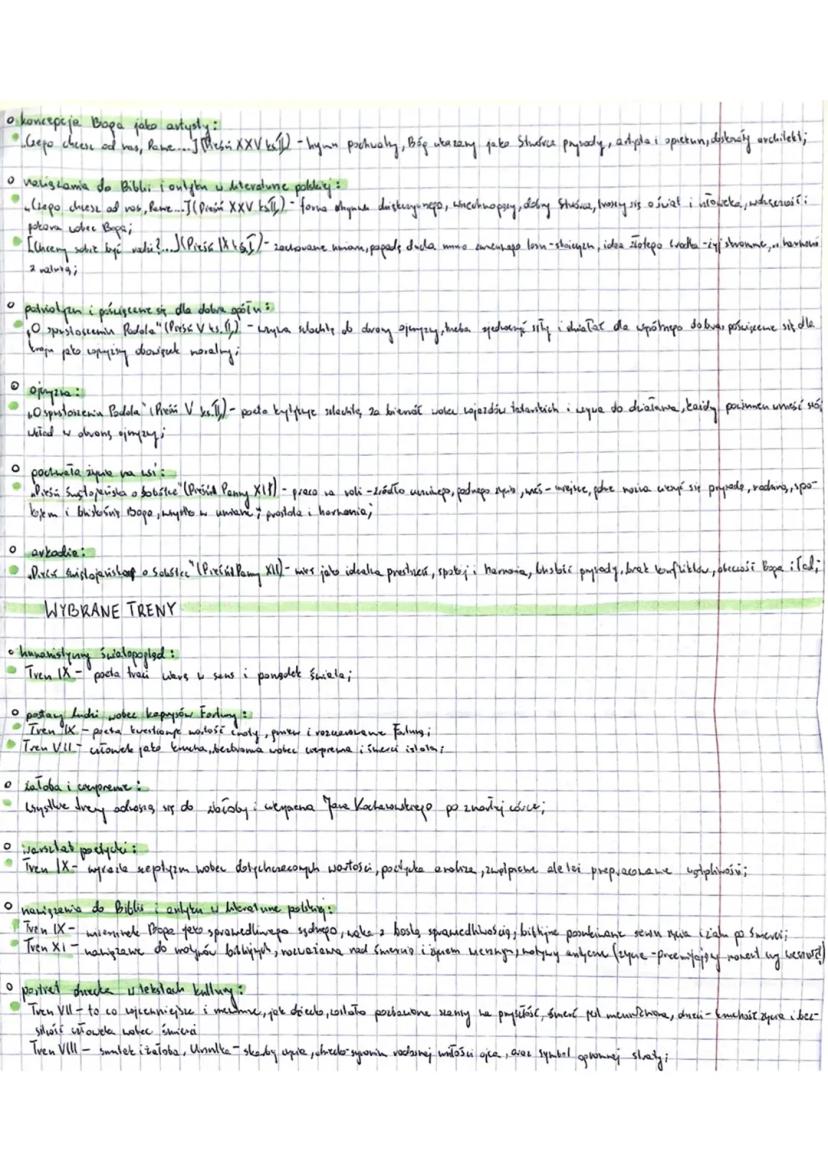 koncepcja Boga jako artysty:
„Czego chcesz od nas, Panie...] (Pieśń XXV ks.II) - hymn pochwalny, Bóg ukazany jako Stwórca przyrody, artysta i opiekun, doskonały architekt;
nawiązania do Biblii i antyku w literaturze polskiej:
„Czego chcesz od nas, Panie...] (Pieśń XXV ks.II) - forma hymnu dziękczynnego, wszechmogący, dobry Stwórca, troszczy się o świat i człowieka, wdzięczność i
pokora wobec Boga;
[Chcemy sobie być radzi?...] (Pieśń IX ks.I) - zachowanie umiaru, pogody ducha mimo zmiennego losu - stoicyzm, idea złotego środka - żyj skromnie, w harmonii
z naturą;
patriotyzm i poświęcenie się dla dobra ogółu:
„O spustoszeniu Podola" (Pieśń V ks.II) - wzywa szlachtę do obrony ojczyzny, trzeba zjednoczyć siły i działać dla wspólnego dobra, poświęcenie się dla
kraju jako najwyższy obowiązek moralny;
ojczyzna:
„O spustoszeniu Podola" (Pieśń V ks.II) - poeta krytykuje szlachtę, za bierność wobec najazdów tatarskich i wzywa do działania, każdy powinien wnieść swój
wkład w obronę ojczyzny;
pochwała życia na wsi:
„Pieśń świętojańska o Sobótce" (Pieśń Panny XII) - praca na roli - źródło uczciwego, godnego życia, wieś - miejsce, gdzie można cieszyć się przyrodą, rodziną, spo-
kojem i bliskością Boga, wszystko w umiarze, prostota i harmonia;
arkadia:
„Pieśń świętojańska o Sobótce" (Pieśń Panny XII) - wieś jako idealna przestrzeń, spokój i harmonia, bliskość przyrody, brak konfliktów, obecność Boga i ład;
WYBRANE TRENY
humanistyczny światopogląd:
Tren IX - poeta traci wiarę w sens i porządek świata;
postawy ludzi wobec kaprysów Fortuny:
Tren IX - poeta kwestionuje wartość cnoty, gniew i rozczarowanie Fortuną;
Tren VII - człowiek jako krucha, bezbronna wobec cierpienia i śmierci istota;
żałoba i cierpienie:
wszystkie treny odnoszą się do żałoby i cierpienia Jana Kochanowskiego po zmarłej córce;
warsztat poetycki:
Tren IX - wyraża sceptyzm wobec dotychczasowych wartości, poetycka analiza, zwątpienie ale też przepracowane wątpliwości;
nawiązania do Biblii i antyku w literaturze polskiej:
Tren IX - mienienie Boga jako sprawiedliwego sędziego, walka z boską sprawiedliwością, biblijne poszukiwanie sensu życia i żalu po śmierci;
Tren XI - nawiązanie do motywów biblijnych, rozważania nad śmiercią i życiem wiecznym, motywy antyczne (życie - przemijający moment czy wieczność)
portret dziecka w tekstach kultury:
Tren VII - to co najcenniejsze i niewinne, jak dziecko, zostało pozbawione szansy na przyszłość, śmierć jest nieunikniona, dzieci - kruchość życia i bez-
silność człowieka wobec śmierci
Tren VIII - smutek i żałoba, Urszulka - skarb ojca, dziecko - synonim rodzinnej miłości ojca, oraz symbol ogromnej straty;